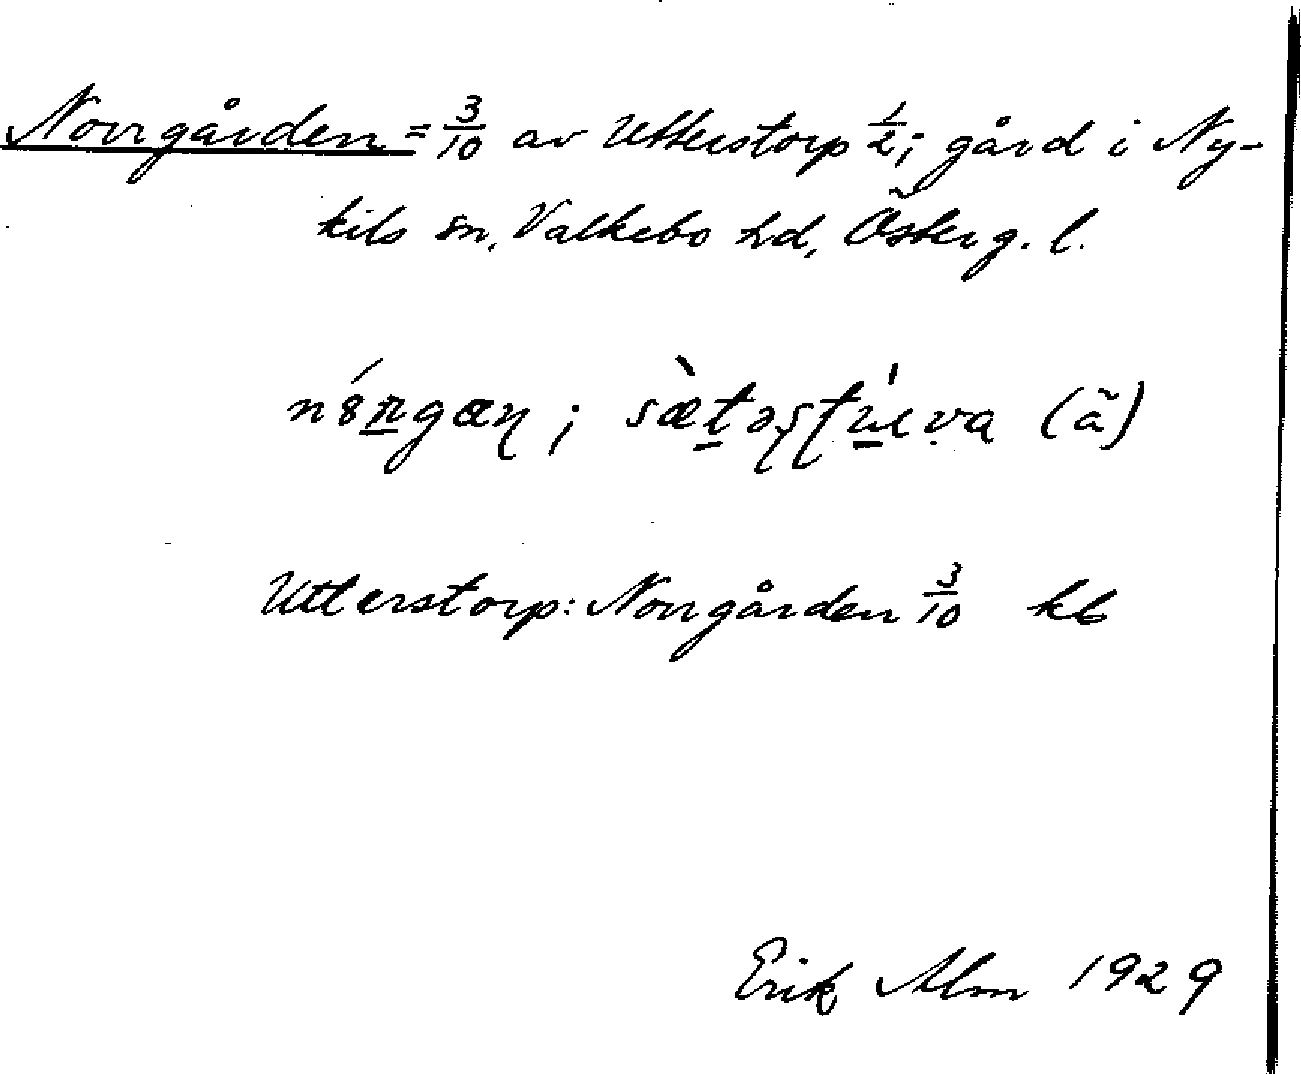 Norrgården = 3/10 av Utterstorp 1/2; gård i Ny-
kils sn, Valkebo hd, Österg. l.
Utterstorp: Norrgården 3/10 kb
Erik Alm 1929